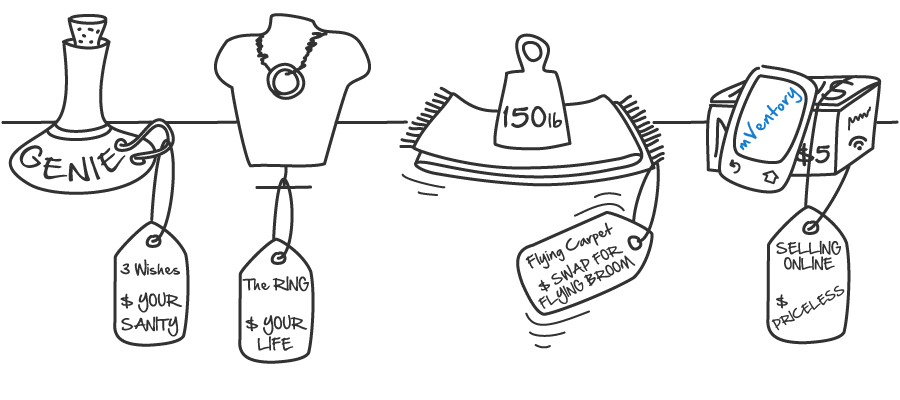 GENIE
3 Wishes
$ YOUR
SANITY
The RING
$ YOUR
LIFE
150lb
Flying Carpet
$ SWAP FOR
FLYING BROOM
mVentory
$5
SELLING
ONLINE
$
PRICELESS